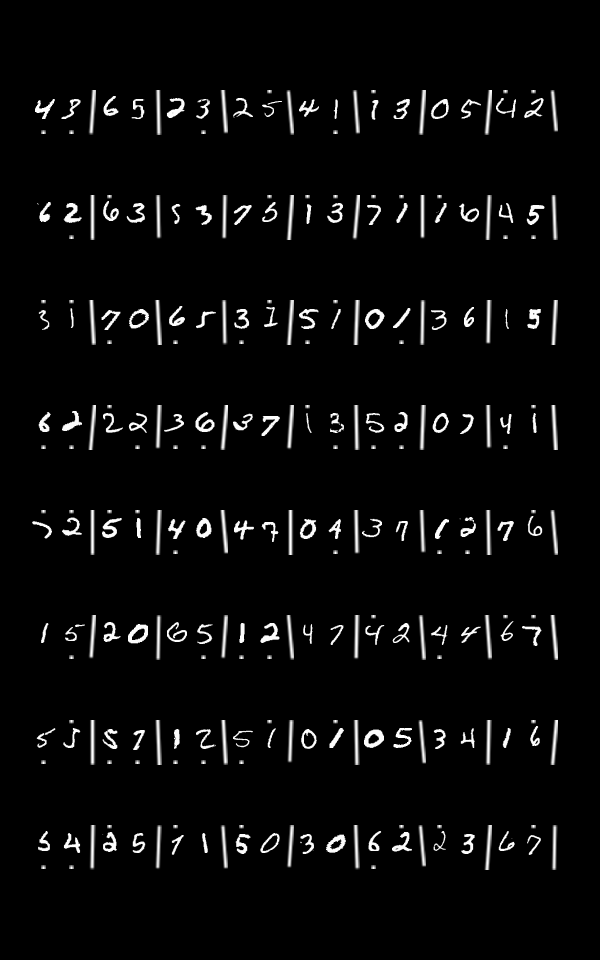 4 3 | 6 5 | 2 3 | 2 5 | 4 1 | 1 3 | 0 5 | 4 2 |
6 2 | 6 3 | 5 3 | 7 5 | 1 3 | 7 1 | 1 6 | 4 5 |
3 1 | 7 0 | 6 5 | 3 1 | 5 1 | 0 1 | 3 6 | 1 5 |
6 2 | 2 2 | 3 6 | 3 7 | 1 3 | 5 2 | 0 7 | 4 1 |
7 2 | 5 1 | 4 0 | 4 7 | 0 4 | 3 7 | 1 2 | 7 6 |
1 5 | 2 0 | 6 5 | 1 2 | 4 7 | 4 2 | 4 4 | 6 7 |
5 5 | 5 7 | 1 2 | 5 1 | 0 1 | 0 5 | 3 4 | 1 6 |
5 4 | 2 5 | 7 1 | 5 0 | 3 0 | 6 2 | 2 3 | 6 7 |